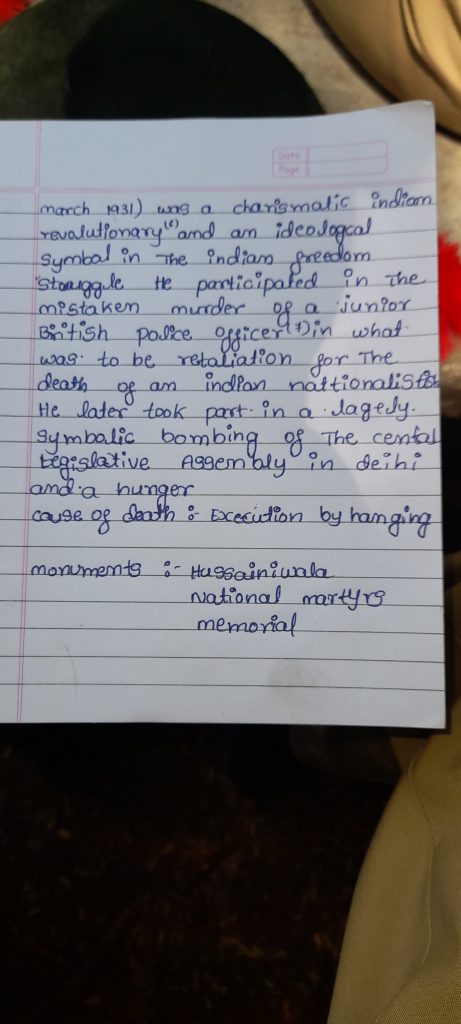 Date
Page
march 1931) was a charismatic indian
revolutionary(6) and an ideological
symbol in The indian freedom
Struggle He participated in The
mistaken murder of a junior
British police officer(7) in what
was to be retaliation for The
death of an indian nattionalist
He later took part in a lagely
symbolic bombing of The cental
Legislative Assembly in delhi
and a hunger
cause of death :- Execution by hanging
monuments :- Hussainiwala
National martyrs
memorial